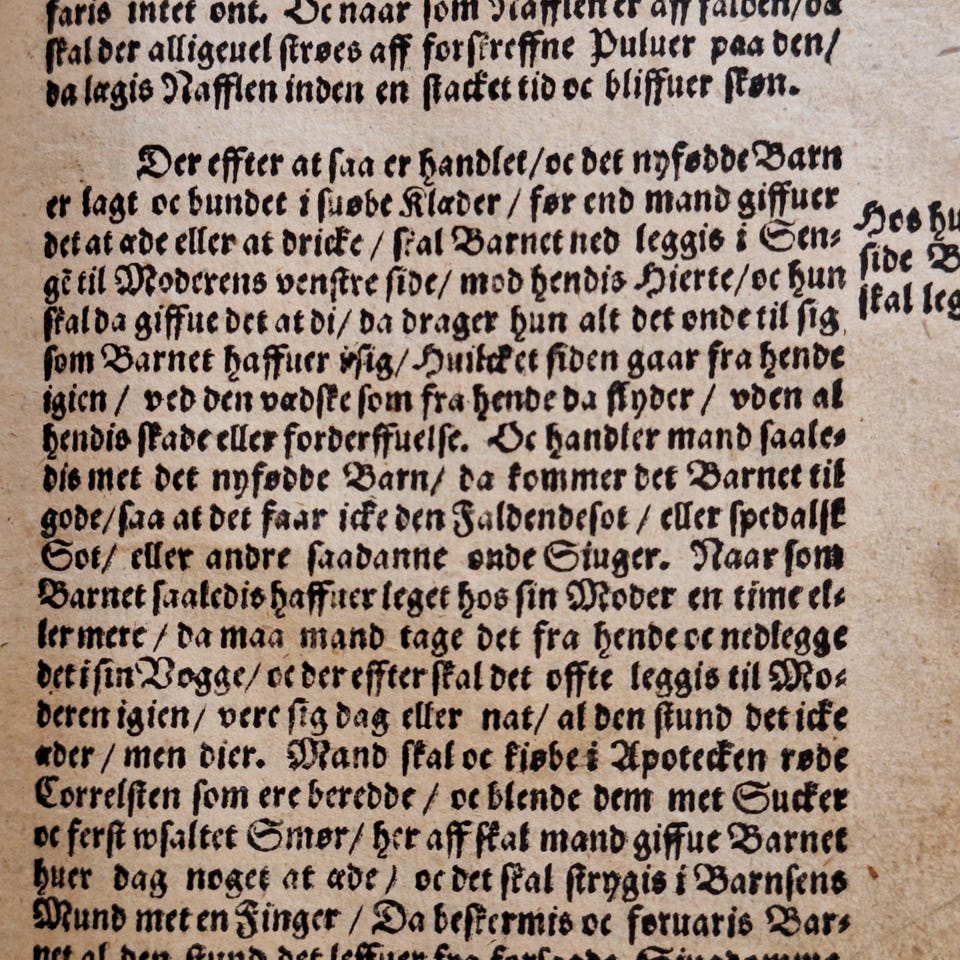 faris intet ont. Oc naar som Nafflen er aff falden/da
skal der alligeuel strøes aff forskreffne Puluer paa den/
da lægis Nafflen inden en stacket tid oc bliffuer skøn.
Der effter at saa er handlet/oc det nyfødde Barn
er lagt oc bundet i suøbe Klæder / før end mand giffuer
det at æde eller at dricke / skal Barnet ned leggis i Sen-
gē til Moderens venstre side/ mod hendis Hierte/oc hun
skal da giffue det at di/ da drager hun alt det onde til sig
som Barnet haffuer i sig/ Huilcket siden gaar fra hende
igien / ved den vædske som fra hende da flyder / vden al
hendis skade eller forderffuelse. Oc handler mand saale-
dis met det nyfødde Barn/ da kommer det Barnet til
gode/saa at det faar icke den Faldendesot / eller spedalsk
Sot/ eller andre saadanne onde Siuger. Naar som
Barnet saaledis haffuer leget hos sin Moder en time el-
ler mere / da maa mand tage det fra hende oc nedlegge
det i sin Vogge/ oc der effter skal det offte leggis til Mo-
deren igien/ vere sig dag eller nat/ al den stund det icke
æder / men dier. Mand skal oc kiøbe i Apotecken røde
Correlsten som ere beredde / oc blende dem met Sucker
oc ferst wsaltet Smør/ her aff skal mand giffue Barnet
huer dag noget at æde / oc det skal strygis i Barnsens
Mund met en Finger / Da beskermis oc foruaris Bar-
net al den stund det leffuer fra forsagde Siugdomme
Hos hu
side B
skal leg